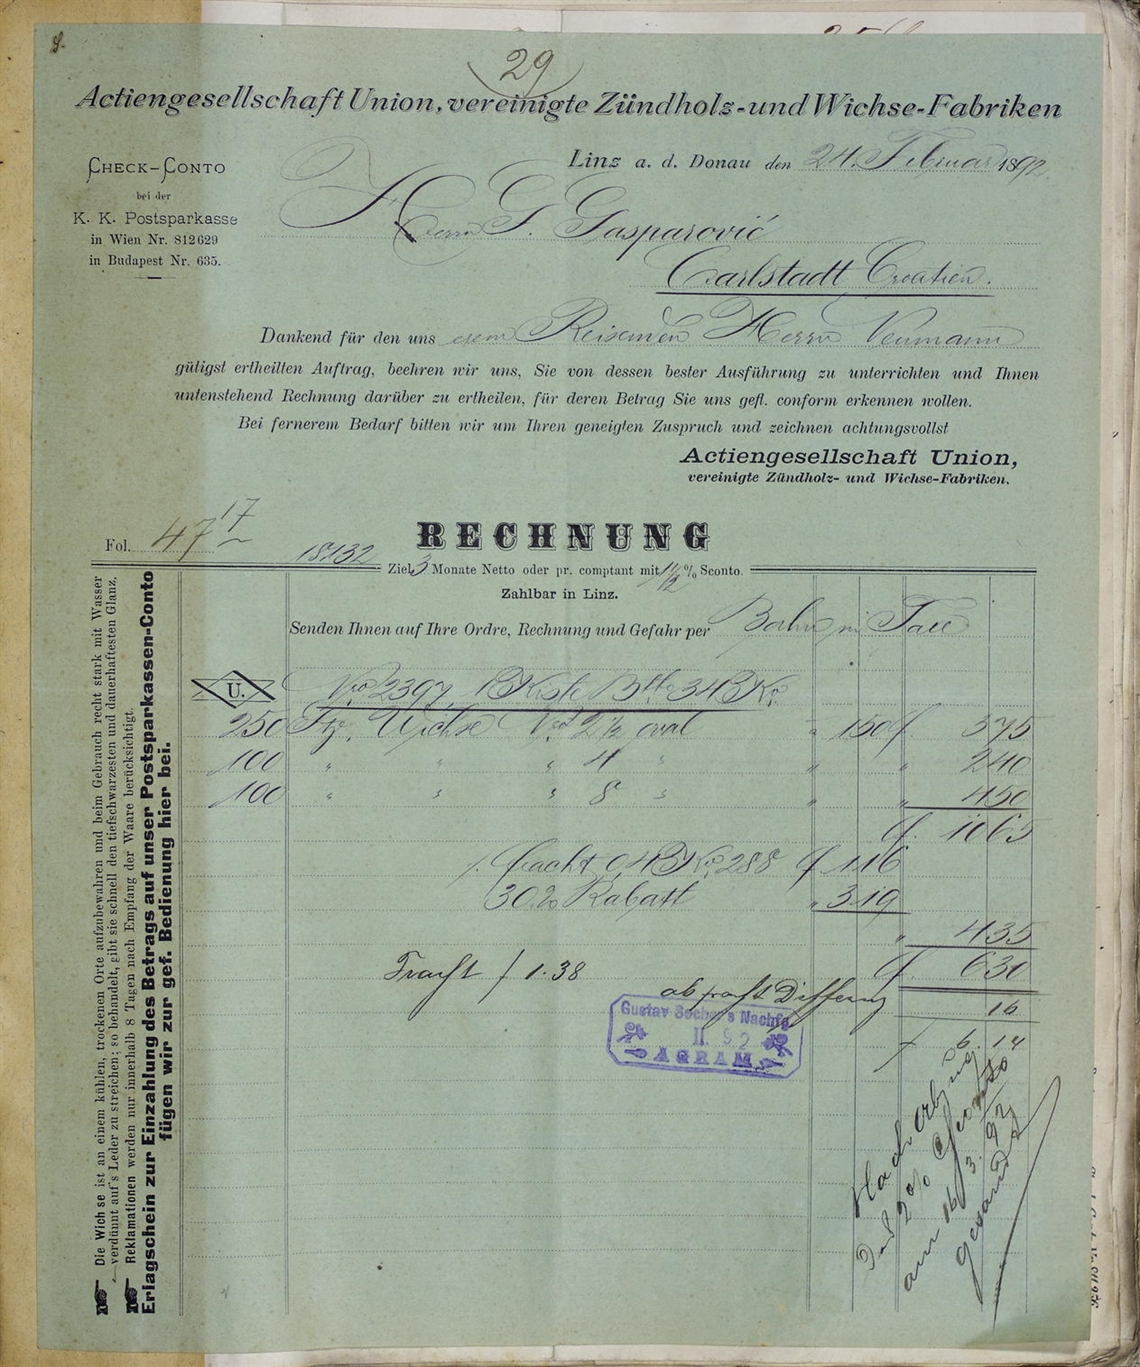 29
Actiengesellschaft Union, vereinigte Zündholz-und Wichse-Fabriken
Linz a. d. Donau den 24. Februar 1892
CHECK-CONTO
bei der
K. K. Postsparkasse
in Wien Nr. 812629
in Budapest Nr. 635.
Herrn G. Gasparović
Carlstadt Croatien.
Dankend für den uns Reisenden Herrn Neumann
gütigst ertheilten Auftrag, beehren wir uns, Sie von dessen bester Ausführung zu unterrichten und Ihnen
untenstehend Rechnung darüber zu ertheilen, für deren Betrag Sie uns gefl. conform erkennen wollen.
Bei fernerem Bedarf bitten wir um Ihren geneigten Zuspruch und zeichnen achtungsvollst
Actiengesellschaft Union,
vereinigte Zündholz- und Wichse-Fabriken.
Fol. 47 17
18132
RECHNUNG
Ziel 3 Monate Netto oder pr. comptant mit 1 1/2 % Sconto.
Zahlbar in Linz.
Senden Ihnen auf Ihre Ordre, Rechnung und Gefahr per Bahn
U. Nro 2397 1 Kiste Btto 34 Ko
250 Wichse Nro 2 1/2 oval " 150 f. 375
100 " " " 4 " " " 240
100 " " " 8 " " " 450
f. 1065
Fracht 0,4 Ko 288 f 1.16
30% Rabatt " 3.19
" 435
f. 630
Fracht f 1.38
ab Differenz
16
f 6.14
Gustav Nachfg
II 92
AGRAM
Nach
2%
am 16/3. 92
gesandt
Die Wichse ist an einem kühlen, trockenen Orte aufzubewahren und beim Gebrauch recht stark mit Wasser
verdünnt auf's Leder zu streichen; so behandelt, gibt sie schnell den tiefschwarzesten und dauerhaftesten Glanz.
Reklamationen werden nur innerhalb 8 Tagen nach Empfang der Waare berücksichtigt.
Erlagschein zur Einzahlung des Betrags auf unser Postsparkassen-Conto
fügen wir zur gef. Bedienung hier bei.